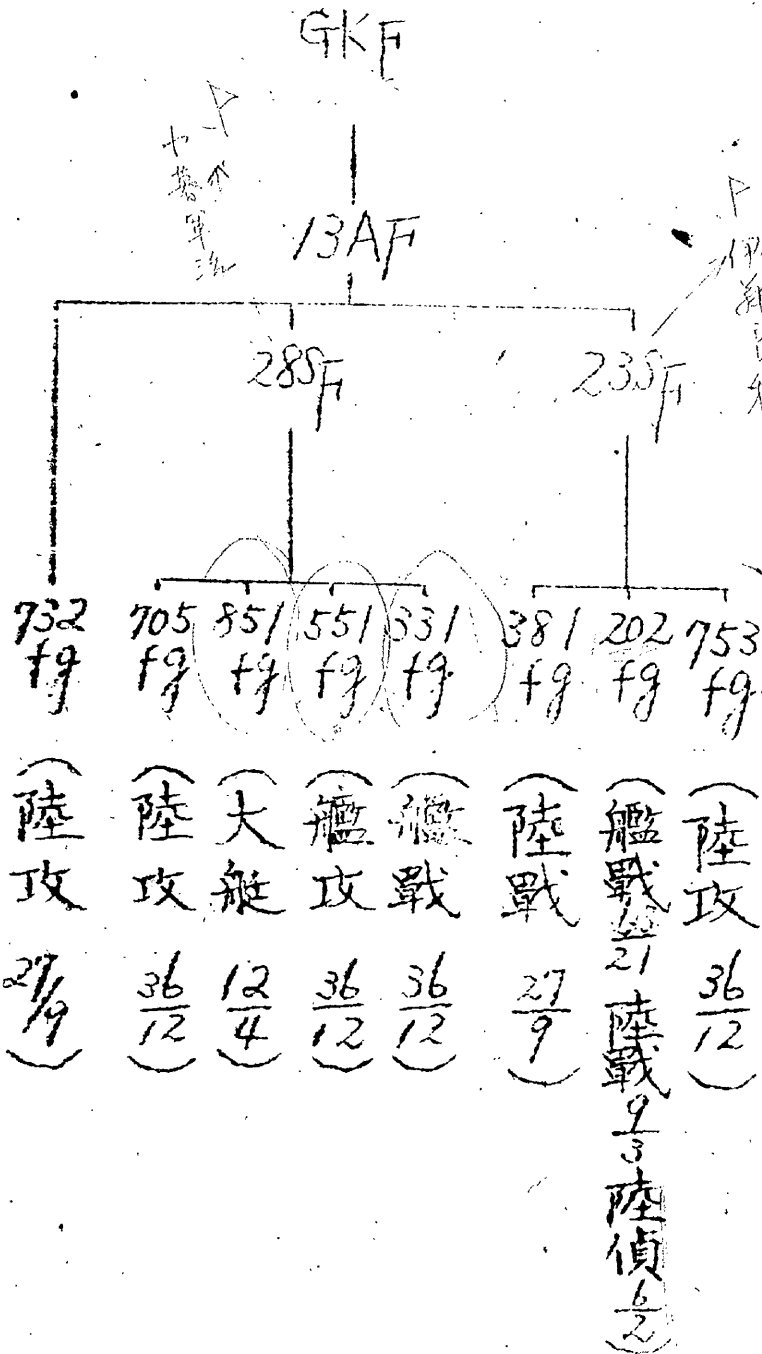 GKF
13AF
28SF
23SF
732 fg
705 fg
851 fg
551 fg
331 fg
381 fg
202 fg
753 fg
(陸攻 27/9)
(陸攻 36/12)
(大艇 12/4)
(艦攻 36/12)
(艦戰 36/12)
(陸戰 27/9)
(艦戰 /21 陸戰 9/3 陸偵 6/2)
(陸攻 36/12)